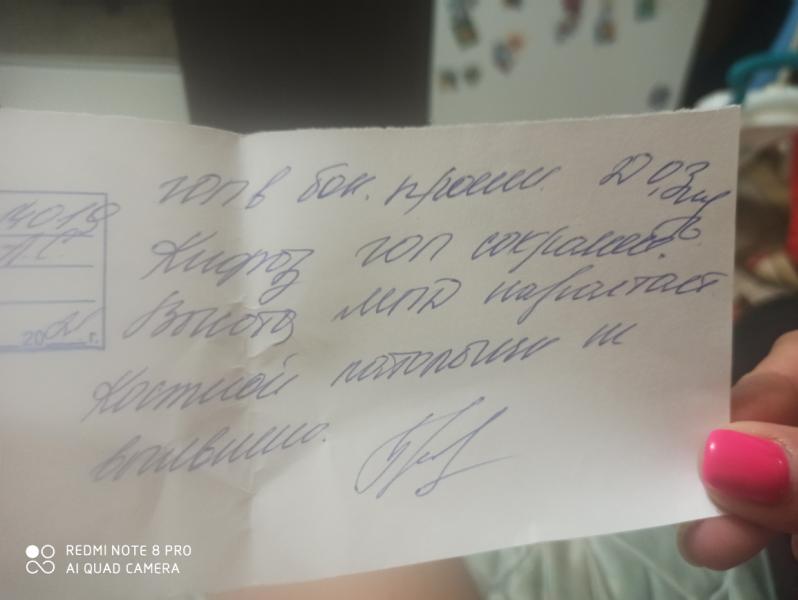 ГОП в бок. проекц. Д 0,3 мзв
Кифоз ГОП сохранен.
Высота МПД нарастает
Костной патологии не
выявлено.
14019
20 г.
REDMI NOTE 8 PRO
AI QUAD CAMERA